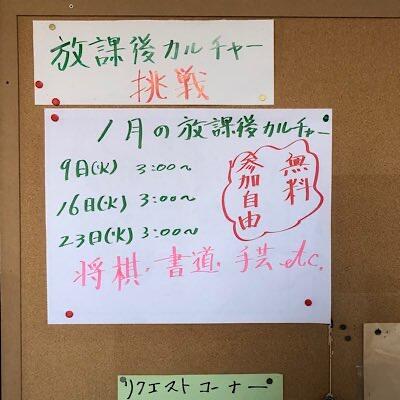 放課後カルチャー
挑戦
1月の放課後カルチャー
9日(火) 3:00〜
16日(火) 3:00〜
23日(火) 3:00〜
無料
参加自由
将棋・書道・手芸 etc.
リクエストコーナー